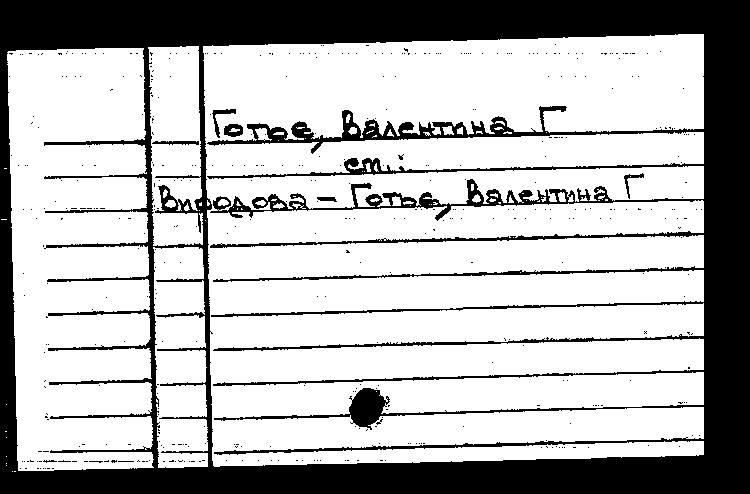 Готье, Валентина Г
см.:
Виродова – Готье, Валентина Г